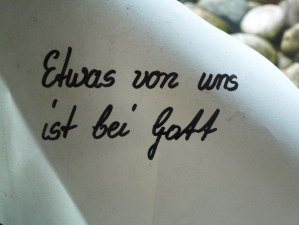 Etwas von uns
ist bei Gott